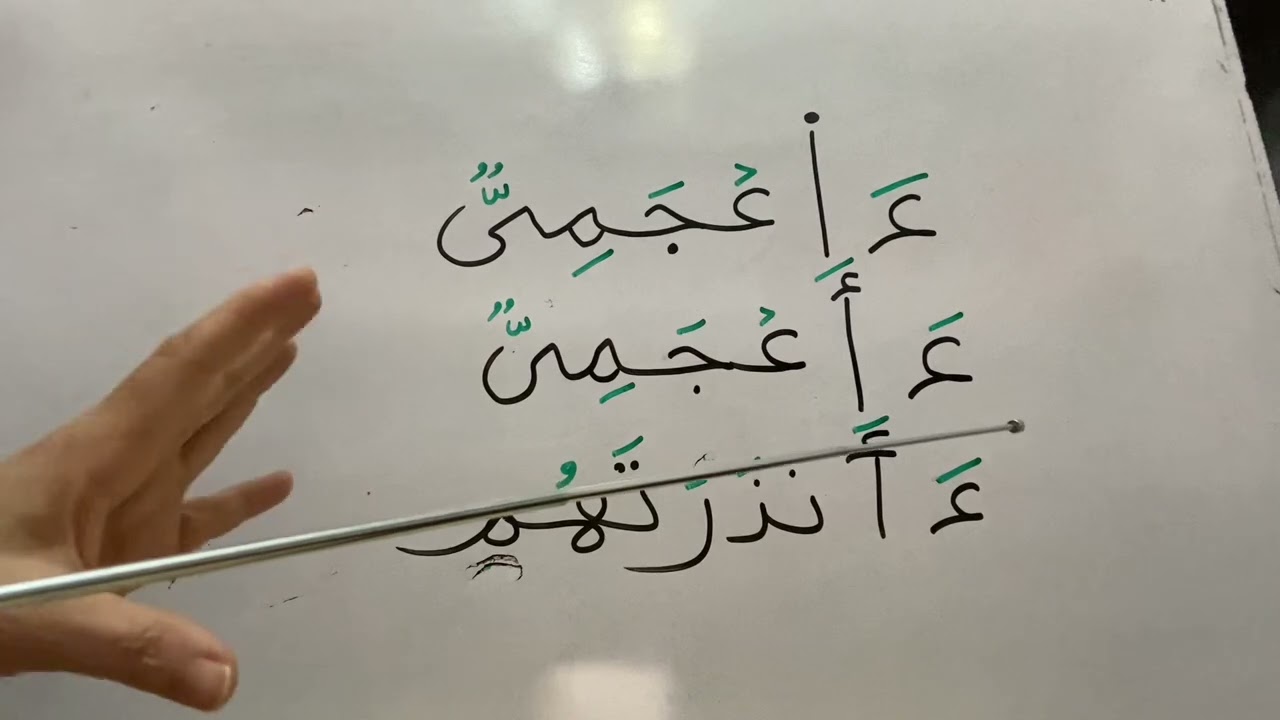 ءَا۬عۡجَمِىٌّ
ءَأَعۡجَمِىٌّ
ءَأَنذَرَتَهُم